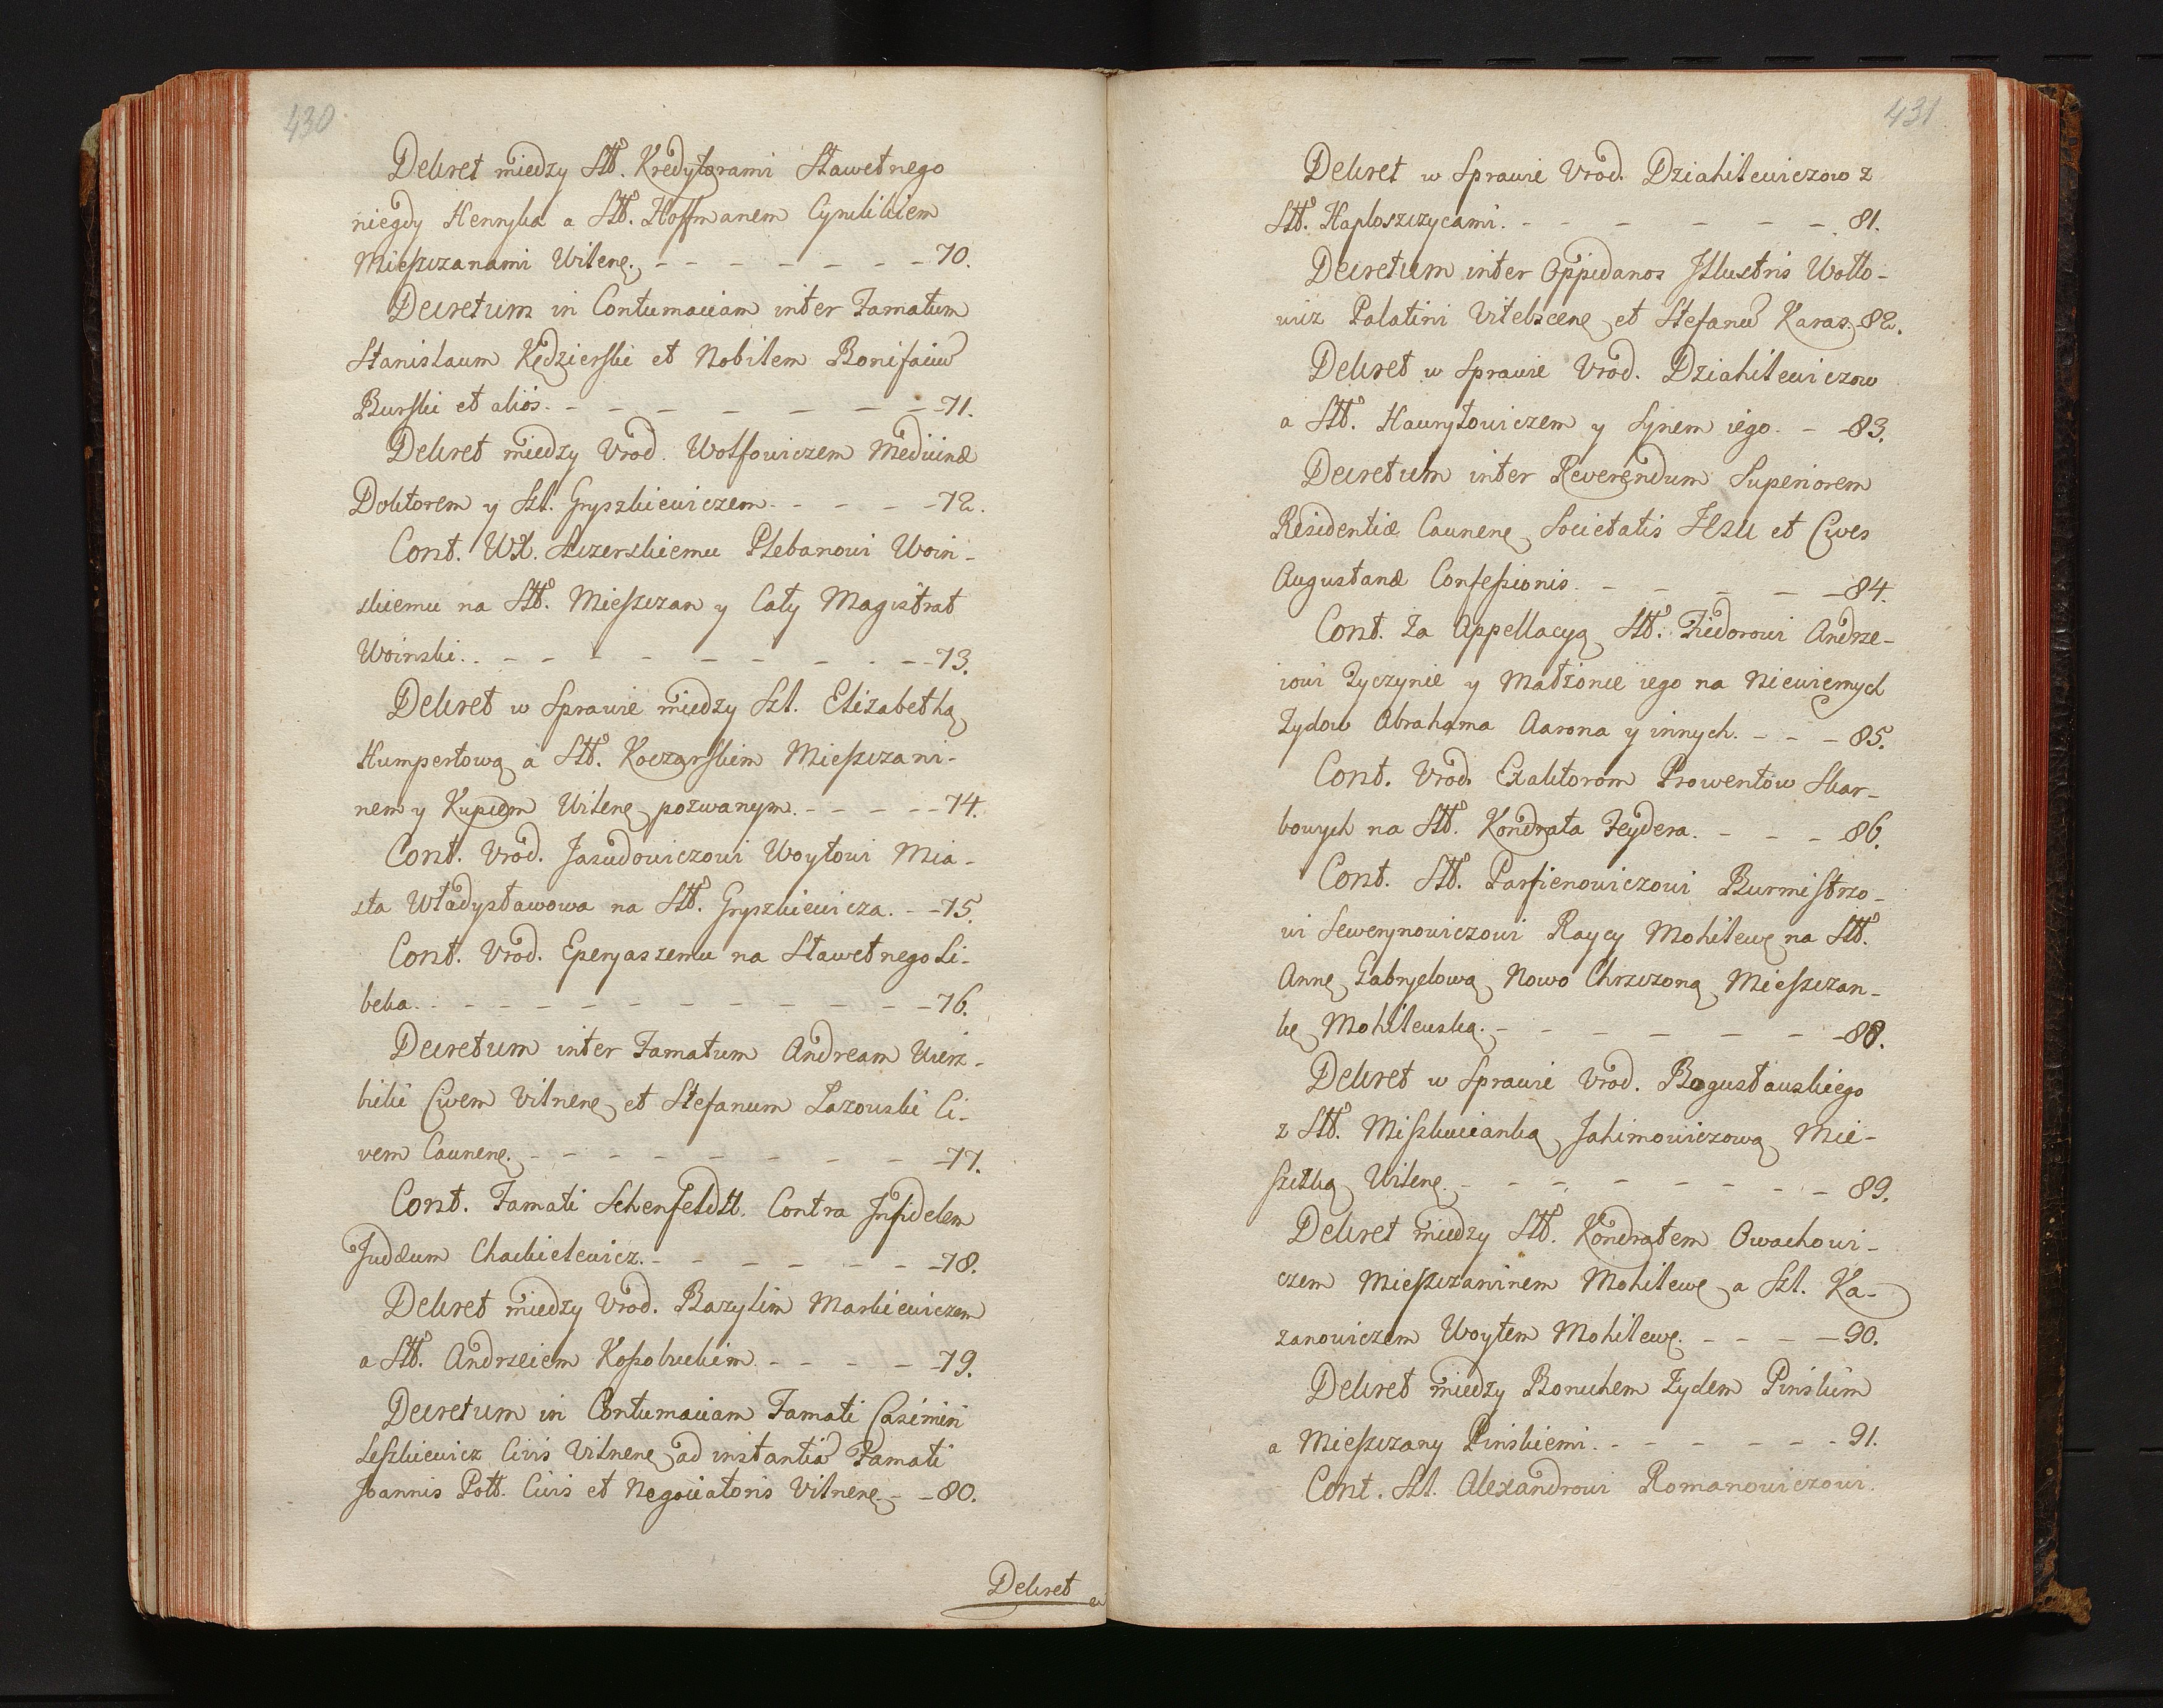 430
Dekret miedzy Stt. Kredytorami Sławetnego
niegdy Henryka a Stt. Hoffmanem Cynulikiem
Mieszczanami Wilenę. - - - - - - - - 70.
Decretum in Contumaciam inter Famatum
Stanislaum Kędzierski et Nobilem Bonifaciū
Burski et alios. - - - - - - - - 71.
Dekret miedzy Vrod. Wolfowiczem Medicinæ
Doktorem y Szl. Gryszkiewiczem. - - - - - 72.
Cont. WX. Sczerskiemu Plebanowi Woin-
skiemu na Stt. Mieszczan y Cały Magistrat
Woinski. - - - - - - - - - 73.
Dekret w Sprawie miedzy Szl. Elizabethą
Humpertową a Stt. Koczarskim Mieszczani-
nem y Kupcem Wilenę pozwanym. - - - - - 74.
Cont. Vrod. Jasudowiczowi Woytowi Mia-
sta Władysławowa na Stt. Gryszkiewicza. - - 75.
Cont. Vrod. Eperyaszemu na Sławetnego Li-
beka. - - - - - - - - - - - 76.
Decretum inter Famatum Andream Wierz-
bicki Civem Vilnenę et Stefanum Lazowski Ci-
vem Caunenę. - - - - - - - - - 77.
Cont. Famati Schenfeldtt. Contra Infidelem
Judæum Chackielewicz. - - - - - - - 78.
Dekret miedzy Vrod. Bazylim Markiewiczem
a Stt. Andrzeiem Kossobuckim. - - - - - 79.
Decretum in Contumaciam Famati Casimiri
Leszkiewicz Civis Vilnenę ad instantiā Famati
Joannis Pott. Civis et Negociatoris Vilnenę. - - 80.
Dekret
431
Dekret w Sprawie Vrod. Dziahilewiczow z
Stt. Haploszczycami. - - - - - - - 81.
Decretum inter Oppidanos Illustris Wołło-
wicz Palatini Vitebscenę et Stefanū Karas. 82.
Dekret w Sprawie Vrod. Dziahilewiczow
a Stt. Hawryłowiczem y Synem iego. - - 83.
Decretum inter Reverendum Superiorem
Residentiæ Caunenę Societatis Jesu et Cives
Augustanæ Confessionis. - - - - - 84.
Cont. Za Appellacyą Stt. Fiedorowi Andrze-
iowi Zyczynie y Małżonie iego na Niewiernych
Zydow Abrahama Aarona y innych. - - - 85.
Cont. Vrod. Exaktorom Prowentow Skar-
bowych na Stt. Kondrata Feydera. - - - - 86.
Cont. Stt. Parfienowiczowi Burmistrzo-
wi Sewerynowiczowi Raycy Mohilewę na Stt.
Annę Gabryelową Nowo Chrzczoną Mieszczan-
kę Mohilewską. - - - - - - - 88.
Dekret w Sprawie Vrod. Bogusławskiego
z Stt. Miszkucianką Jahimowiczową Mie-
szczką Wilenę. - - - - - - - - 89.
Dekret miedzy Stt. Kondratem Owachowi-
czem Mieszczaninem Mohilewę a Szl. Ka-
zanowiczem Woytem Mohilewę. - - - - 90.
Dekret miedzy Boruchem Zydem Pinskim
a Mieszczany Pinskiemi. - - - - - - 91.
Cont. Szl. Alexandrowi Romanowiczowi.